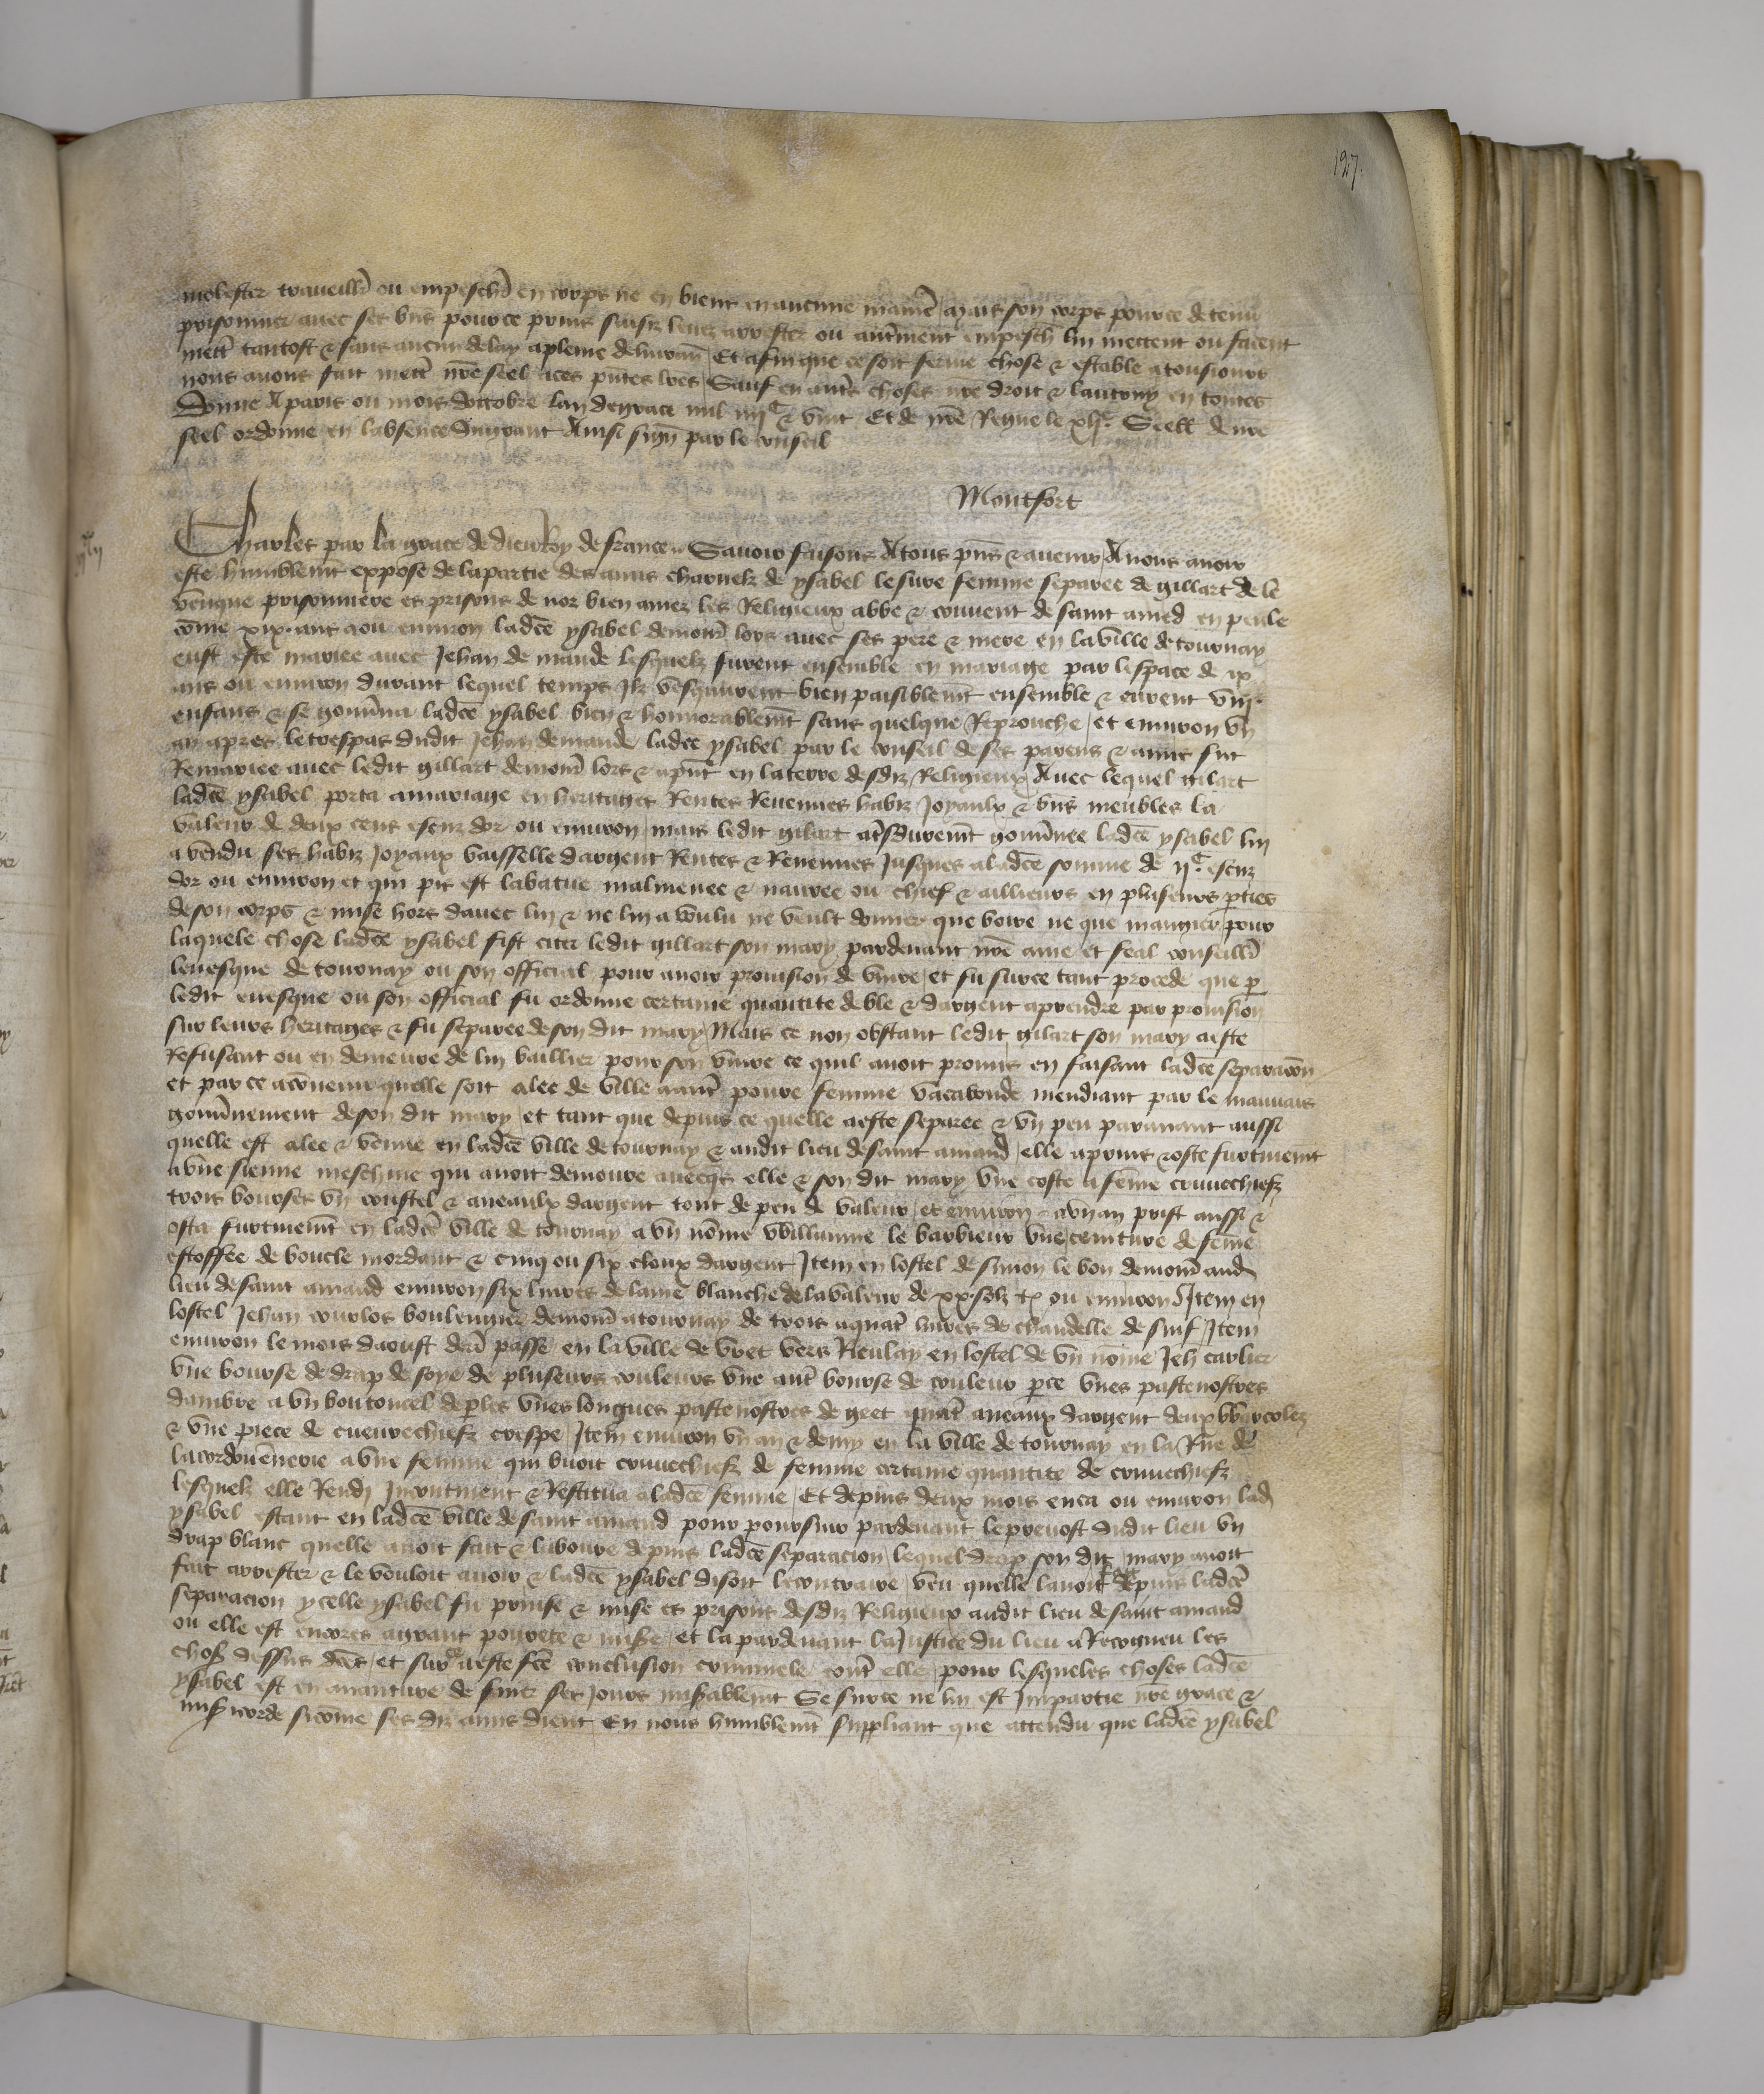 127.
molester traveillr ou empeschr en corps ne en biens en aucune manie mais son corps pour ce detenu
prisonnier avec ses bns pour ce prins saisiz levez arrestez ou autment empeschz lui mettent ou facent
mettr tantost & sans aucun delay a pleine delivran Et afin que ce soit ferme chose & estable a tousiours
nous avons fait mettr nre seel a ces pntes lres Sauf en autrs choses nre droit & lautruy en toutes
Donne A paris ou mois doctobre lan de grace mil iiijc & vint Et de nre Regne le xlje Seelle de nre
seel ordonne en labsence du grant Ainsi sign par le conseil
Montfort
Charles par la grace de dieu Roy de france Savoir faisons A tous pns & avenir A nous avoir
este humblemt expose de la partie des amis charnelz de ysabel lesure femme separee de gillart de le
venque prisonniere es prisons de noz bien amez les Religieux abbe & couvent de saint amend en peule
come xix ans a ou environ ladce ysabel demourr lors avec ses pere & mere en la ville de tournay
eust este mariee avec Jehan de maude lesquelz furent ensemble en mariage par lespace de ix
ans ou environ durant lequel temps Ilz vesquirent bien paisiblemt ensemble & eurent viij
enfans & se gouvna ladce ysabel bien & honnorablemt sans quelque Reprouche et environ vn
an apres le trespas dudit Jehan de maude ladce ysabel par le conseil de ses parens & amis fut
Remariee avec ledit gillart demourr lors & apnt en la terre desdiz Religieux Avec lequel gilart
ladce ysabel porta a mariage en heritages Rentes Revenues habiz Joyaulx & bns meubles la
valeur de deux cens escuz dor ou environ mais ledit gilart a tsdurement gouvnee ladce ysabel lui
a vendu ses habiz Joyaux vaisselle dargent Rentes & Revenues Jusques a ladce somme de ijc escuz
dor ou environ et qui pis est la batue malmenee & navree ou chief & aillieurs en pluseurs pties
de son corps & mise hors davec lui & ne lui a voulu ne veult donner que boire ne que mangier pour
laquele chose ladce ysabel fist citer ledit gillart son mary pardevant nre ame et feal conseillr
levesque de tournay ou son official pour avoir provision de vivre et fu sur ce tant procede que p
ledit evesque ou son official fu ordonne certaine quantite de ble & dargent a prendre par provision
sur leurs heritages & fu separee de son dit mary Mais ce non obstant ledit gilart son mary a este
Refusant ou en demeure de lui baillier pour son vivre ce quil avoit promis en faisant ladce separacon
et par ce a convenu quelle soit alee de ville a autr povre femme vacabonde mendiant par le mauvais
gouvnement de son dit mary et tant que depuis ce quelle a este separee & vn peu paravant aussi
quelle est alee & venue en ladce ville de tournay & audit lieu de saint amand elle a prins & oste furtivemt
a vne sienne meschine qui avoit demoure avecqs elle & son dit mary vne coste a feme couvrechiefz
trois bourses vn coustel & aneaulx dargent tout de peu de valeur et environ a vn an prist aussi &
osta furtivemt en ladce ville de tournay a vn nome willaume le barbieur vne ceinture de feme
estoffee de boucle mordant & cinq ou six cloux dargent Item en lostel de simon le bon demourr aud
lieu de saint amand environ six livres de laine blanche de la valeur de xx solz tz ou environ Item en
lostel Jehan courlos boulenguer demourr a tournay de trois a quatr livres de chandelle de suif Item
environ le mois daoust derr passe en la ville de vret vers Rieulay en lostel de vn nome Jeh carlier
vne bourse de drap de soye de pluseurs couleurs vne autr bourse de couleur pce vnes pastenostres
dambre a vn boutoncel de ples vnes longues pastenostres de geet quatr aneaux dargent deux
& vne piece de cueuvrechiefz crespe Item environ vn an & demy en la ville de tournay en la Rue de
la cordouennerie a vne femme qui buoit couvrechiefz de femme certaine quantite de couvrechiefz
lesquelz elle Rendi Incontinent & Restitua a ladce femme Et depuis deux mois enca ou environ lad
ysabel estant en ladce ville de saint amand pour poursuir pardevant le prevost dudit lieu vn
drap blanc quelle avoit fait & laboure depuis ladce separacion lequel drap son dit mary avoit
fait arrester & le vouloit avoir & ladce ysabel disoit le contraire veu quelle lavoit fait depuis ladce
separacion ycelle ysabel fu prinse & mise es prisons desdiz Religieux audit lieu de saint amand
ou elle est encores a grant povrete & misere et la pardevant la Justice du lieu a Recogneu les
choses dessus dces et sur ce a este fce conclusion criminele contr elle pour lesqueles choses ladce
ysabel est en avanture de finer ses Jours misablemt Se sur ce ne lui est Impartie nre grace &
misicorde si come ses diz amis dient En nous humblemt suppliant que attendu que ladce ysabel